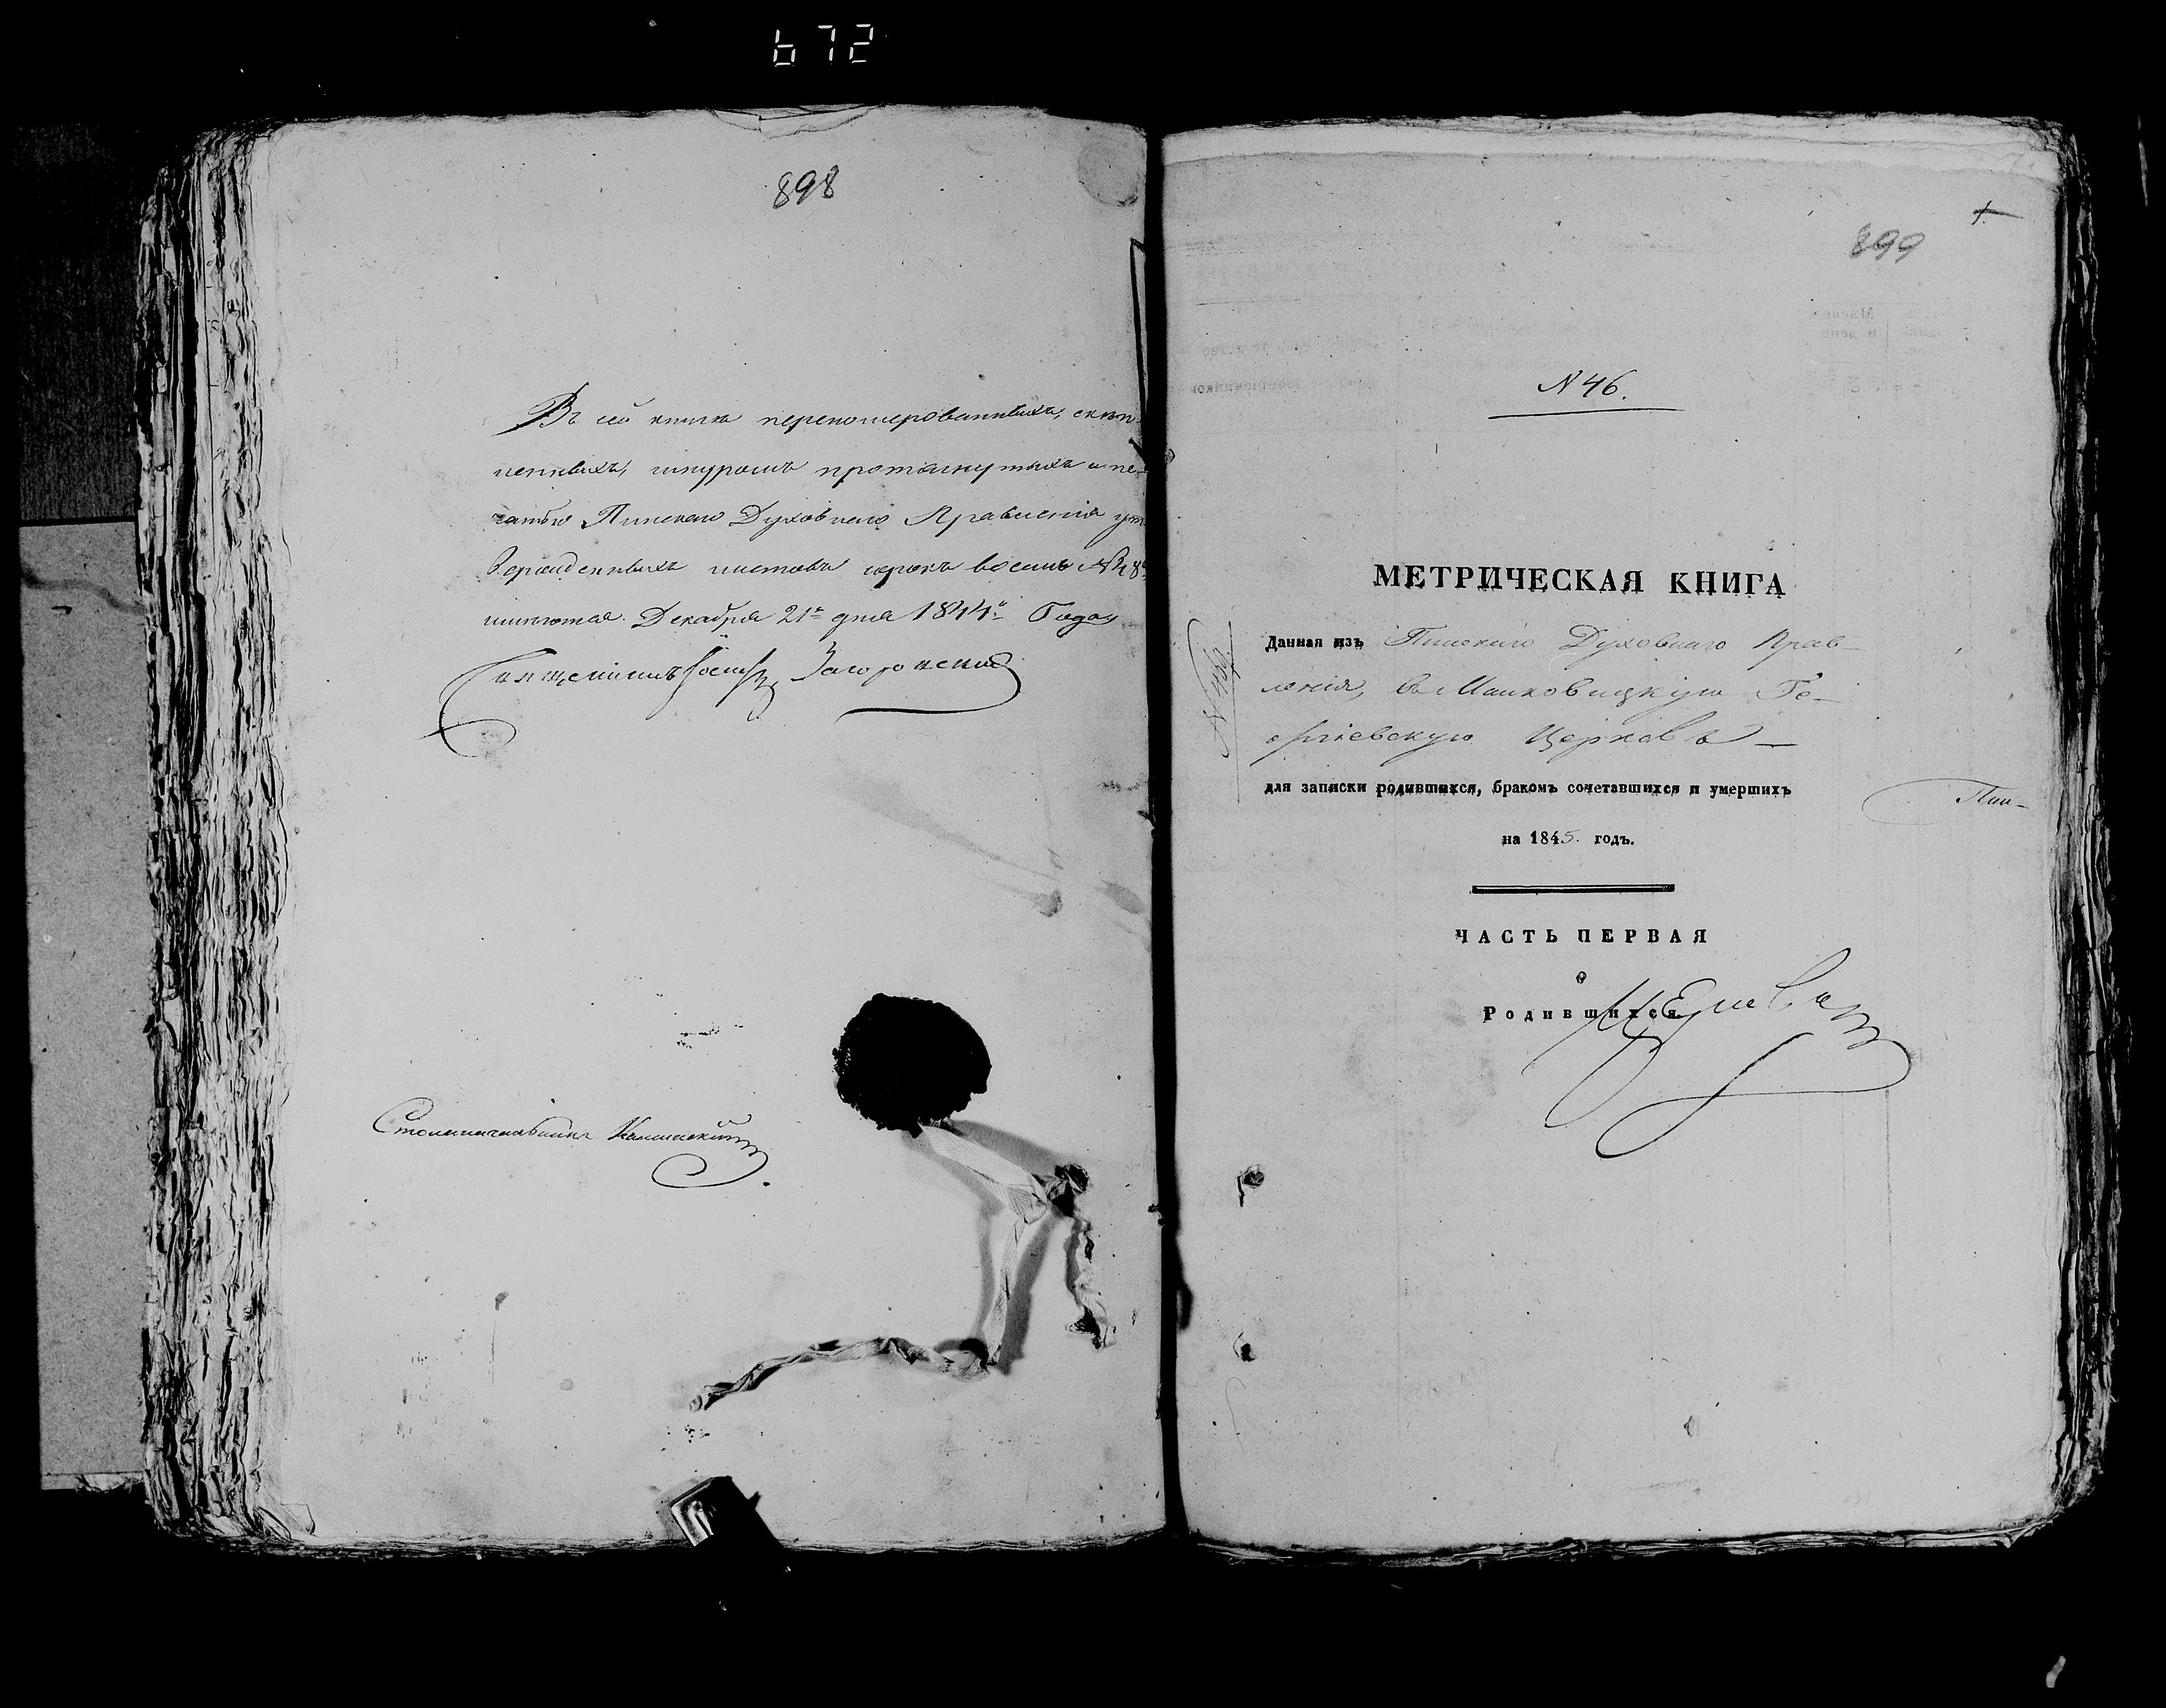 672
898
Въ сей книгѣ перенумерованныхъ, скрѣп
ленныхъ, шнуромъ протянутыхъ и пе-
чатью Пинскаго Духовнаго Правленія ут
вержденныхъ листовъ сорокъ восемь №48
имѣется. Декабря 21го дня 1844го Года
Священникъ Іосифъ
Столоначальникъ
1.
899
N 46.
МЕТРИЧЕСКАЯ КНИГА
Данная изъ Пинскаго Духовнаго Прав-
ленія, въ Ге-
оргіевскую Церковь —
для записки родившихся, бракомъ сочетавшихся и умершихъ
на 1845. годъ.
Пин-
ЧАСТЬ ПЕРВАЯ
о
Родившихся